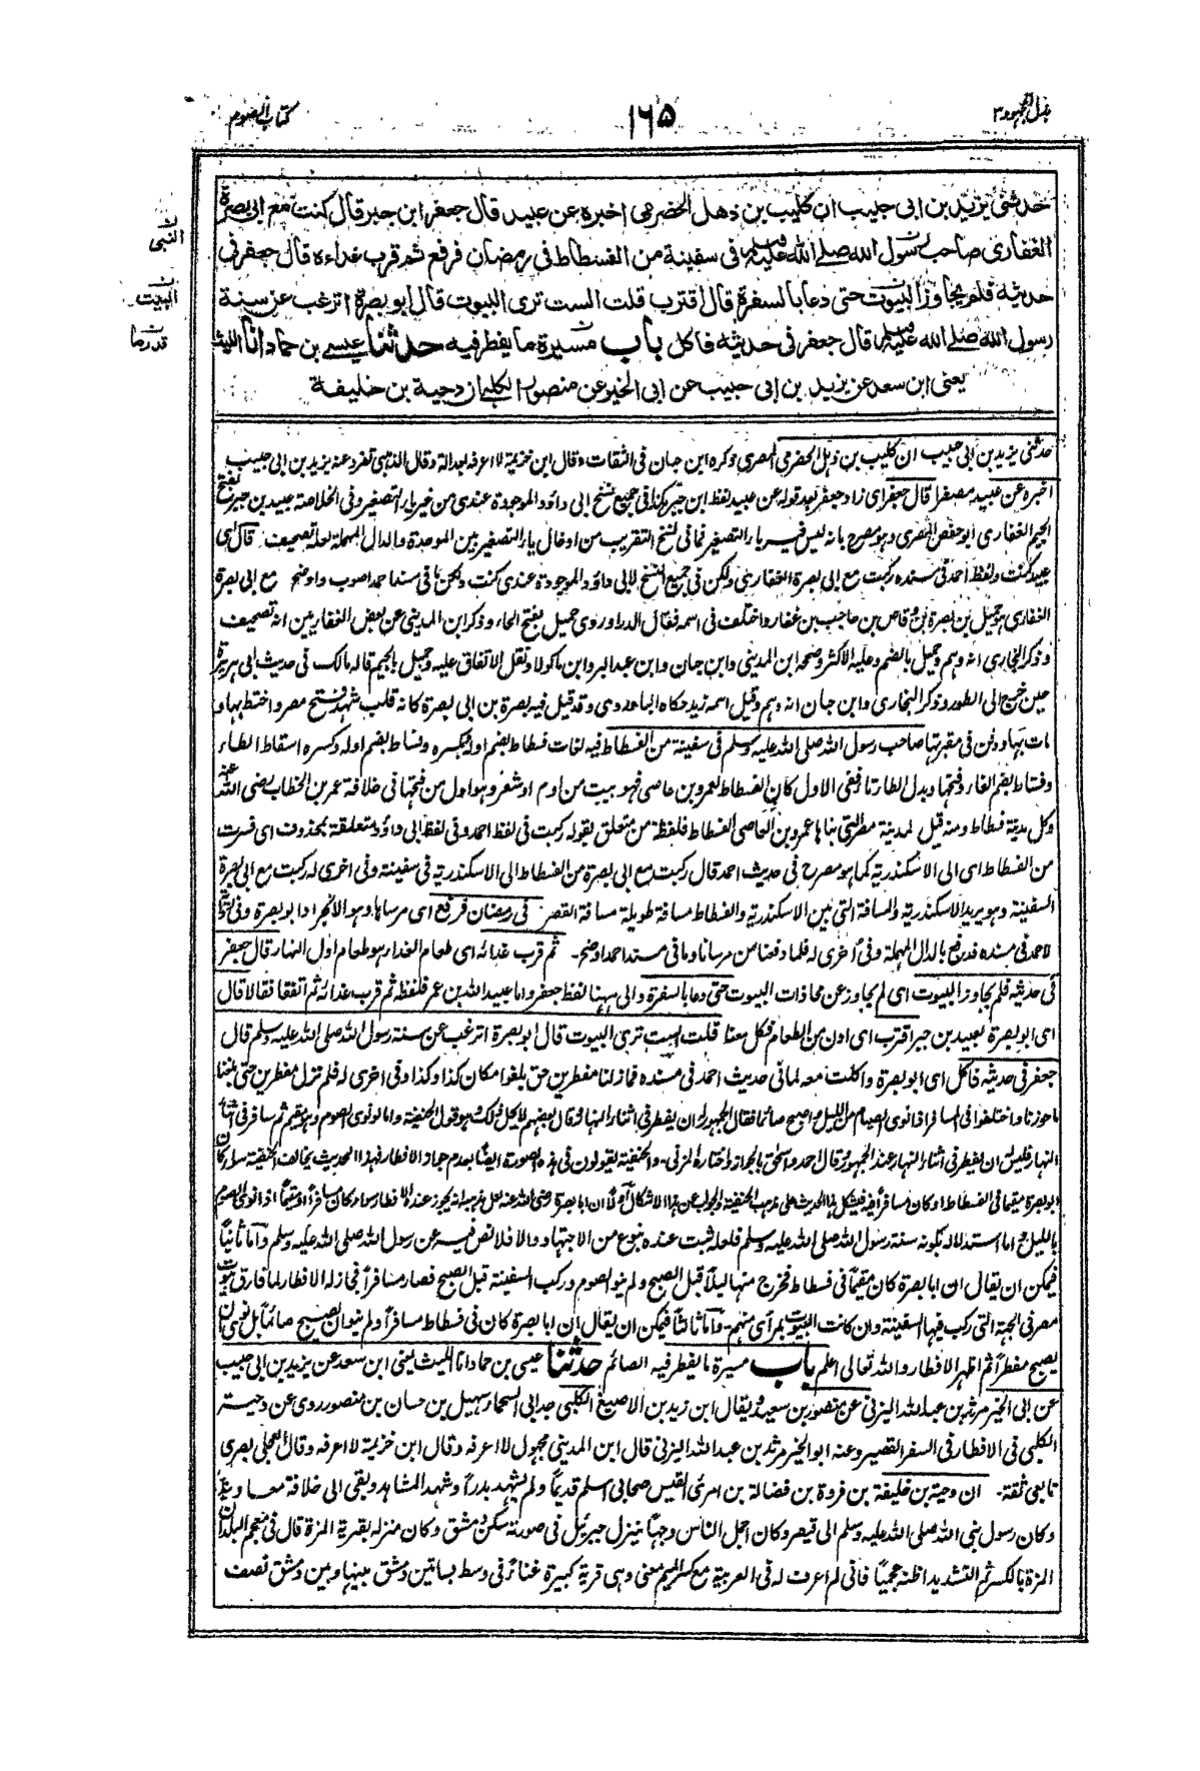 بذل المجهود ٣
١٦٥
كتاب الصوم
حدثنى يزيد بن ابى حبيب ان كليب بن ذهل الحضرمى اخبره عن عبيد قال جعفر ابن جبر قال كنت مع ابى بصرة
الغفارى صاحب رسول الله صلى الله عليه وسلم فى سفينة من الفسطاط فى رمضان فرفع ثم قرب غداءه قال جعفر فى
حديثه فلم يجاوز البيوت حتى دعا بالسفرة قال اقترب قلت الست ترى البيوت قال ابو بصرة اترغب عن سنة
رسول الله صلى الله عليه وسلم قال جعفر فى حديثه فاكل باب مسيرة ما يفطر فيه حدثنا عيسى بن حماد انا الليث
يعنى ابن سعد عن يزيد بن ابى حبيب عن ابى الخير عن منصور الكلبى ان دحية بن خليفة
النبى
البيت
قدر ما
حدثنى يزيد بن ابى حبيب ان كليب بن ذهل الحضرمى المصرى ذكره ابن حبان فى الثقات وقال ابن خزيمة لا اعرفه بعدالة وقال الذهبى تفرد عنه يزيد بن ابى حبيب
اخبره عن عبيد مصغرا قال جعفر اى زاد جعفر بعد قوله عن عبيد لفظ ابن جبر هكذا فى جميع نسخ ابى داؤد الموجودة عندى من غير ياء التصغير وفى الخلاصة عبيد بن جبر بفتح
الجيم الغفارى ابو حفص المصرى وهو مصرح بانه ليس فيه ياء التصغير فما فى نسخ التقريب من ادخال ياء التصغير بين الموحدة والدال المهملة لعله تصحيف قال اى
عبيد كنت ولفظ احمد فى مسنده ركبت مع ابى بصرة الغفارى ولكن فى جميع النسخ لابى داؤد الموجودة عندى كنت ولكن ما فى مسند احمد اصوب واوضح مع ابى بصرة
الغفارى هو حميل بن بصرة بن وقاص بن حاجب بن غفار واختلف فى اسمه فقال الدراوردى حميل بفتح الحاء وذكر ابن المدينى عن بعض الغفاريين انه تصحيف
وذكر البخارى انه وهم وحميل بالضم وعليه الاكثر وصححه ابن المدينى وابن حبان وابن عبد البر وابن ماكولا ونقل الاتفاق عليه وجميل بالجيم قاله مالك فى حديث ابى هريرة
حين خرج الى الطور وذكر البخارى وابن حبان انه وهم وقيل اسمه زيد حكاه الباوردى وقد قيل فيه بصرة بن ابى بصرة كانه قلب شهد فتح مصر واختط بها و
مات بها ودفن فى مقبرتها صاحب رسول الله صلى الله عليه وسلم فى سفينة من الفسطاط فيه لغات فسطاط بضم اوله وبكسره وفساط بضم اوله وكسره اسقاط الطاء
وفستاط بضم الفاء وفتحها وبدل الطاء تا ففى الاول كان الفسطاط لعمرو بن عاصى فهو بيت من ادم او شعر وهو اول من فتحها فى خلافة عمر بن الخطاب رضى الله عنه
وكل مدينة فسطاط ومنه قيل لمدينة مصر التى بناها عمرو بن العاصى الفسطاط فلفظة من متعلق بقوله ركبت فى لفظ احمد وفى لفظ ابى داؤد متعلقة بمحذوف اى
من الفسطاط اى الى الاسكندرية كما هو مصرح فى حديث احمد قال ركبت مع ابى بصرة من الفسطاط الى الاسكندرية فى سفينة وفى اخرى له ركبت مع ابى بصرة
السفينة وهو يريد الاسكندرية والمسافة التى بين الاسكندرية والفسطاط مسافة طويلة مسافة القصر فى رمضان فرفع اى مرساها وهو الانجر او ابو بصرة وفى رواية
لاحمد فى مسنده فدفع بالدال المهملة وفى اخرى له فلما دفعنا من مرسانا وما فى مسند احمد اوضح۔ ثم قرب غدائه اى طعام الغداء وهو طعام اول النهار قال جعفر
فى حديثه فلم يجاوز البيوت اى لم يجاوز عن محاذات البيوت حتى دعا بالسفرة والى ههنا لفظ جعفر واما عبيد الله بن عمر فلفظه ثم قرب غدائه ثم اتفقا فقالا قال
اى ابو بصرة لعبيد بن جبر اقترب اى ادن من الطعام فكل معنا قلت الست ترى البيوت قال ابو بصرة اترغب عن سنة رسول الله صلى الله عليه وسلم قال
جعفر فى حديثه فاكل اى ابو بصرة واكلت معه لما فى حديث احمد فى مسنده فما زلنا مفطرين حتى بلغوا مكان كذا وكذا وفى اخرى له فلم نزل مفطرين حتى بلغنا
ماحوزنا واختلفوا فى المسافر اذا نوى الصيام من الليل واصبح صائما فقال الجمهور له ان يفطر فى اثناء النهار وقال بعضهم لا يحل ذلك وهو قول الحنفية واما لو نوى الصوم وهو مقيم ثم سافر فى اثناء
النهار فليس له ان يفطر فى اثناء النهار عند الجمهور وقال احمد واسحق بالجواز واختاره المزنى۔ والحنفية يقولون فى هذه الصورة ايضا بعدم جواز الافطار فهذا الحديث يخالف الحنفية سواء كان
ابو بصرة مقيما فى الفسطاط او كان مسافرا فيشكل هذا الحديث على مذهب الحنفية والجواب عن هذا الاشكال اولا ان ابا بصرة رضى الله عنه لعل مذهبه انه يجوز عنده الافطار سواء كان مسافرا او مقيما اذا نوى الصوم
بالليل واما استدلاله بكونه سنة رسول الله صلى الله عليه وسلم فلعله ثبت عنده بنوع من الاجتهاد والا فلا نص فيه عن رسول الله صلى الله عليه وسلم واما ثانيا
فيمكن ان يقال ان ابا بصرة كان مقيما فى فسطاط فخرج منها ليلا قبل الصبح ولم ينو الصوم وركب السفينة قبل الصبح فصار مسافرا فجاز له الافطار لما فارق بيوت
مصر فى الجهة التى ركب فيها السفينة وان كانت البيوت بمرأى منهم۔ واما ثالثا فيمكن ان يقال ان ابا بصرة كان فى فسطاط مسافرا ولم ينو ان يصبح صائما بل نوى ان
يصبح مفطرا ثم اظهر الافطار والله تعالى اعلم باب مسيرة ما يفطر فيه الصائم حدثنا عيسى بن حماد انا الليث يعنى ابن سعد عن يزيد بن ابى حبيب
عن ابى الخير مرثد بن عبد الله اليزنى عن منصور بن سعيد ويقال ابن زيد بن الاصبغ الكلبى جد ابى السمار سهيل بن حسان بن منصور روى عن دحية
الكلبى فى الافطار فى السفر القصير وعنه ابو الخير مرثد بن عبد الله اليزنى قال ابن المدينى مجهول لا اعرفه وقال ابن خزيمة لا اعرفه وقال العجلى بصرى
تابعى ثقة۔ ان دحية بن خليفة بن فروة بن فضالة بن امرئ القيس صحابى اسلم قديما ولم يشهد بدرا وشهد المشاهد وبقى الى خلافة معاوية
وكان رسول نبى الله صلى الله عليه وسلم الى قيصر وكان اجمل الناس وجها ينزل جبرئيل فى صورته سكن دمشق وكان منزله بقرية المزة قال فى معجم البلدان
المزة بالكسر ثم التشديد اظنه عجميا فانى لم اعرف له فى العربية مع كسر الميم معنى وهى قرية كبيرة غناء فى وسط بساتين دمشق بينها وبين دمشق نصف